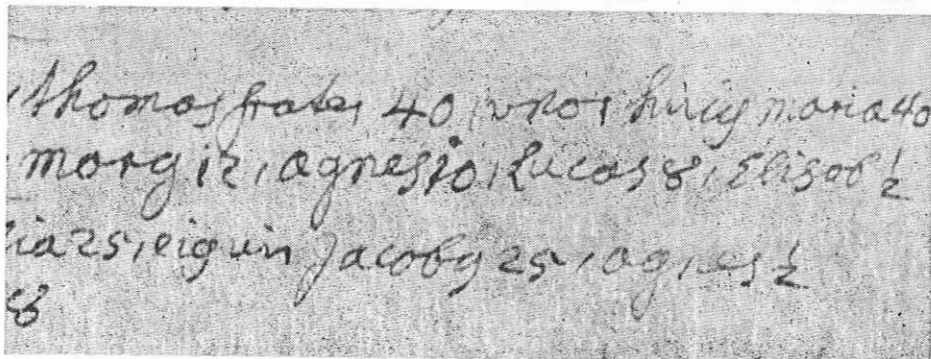 thomas frater 40, uxor huius maria 40
marg 12, agnes 10, Lucas 8, Elisab ½
lia 25, eius vir Jacobus 25, agnes ½
8